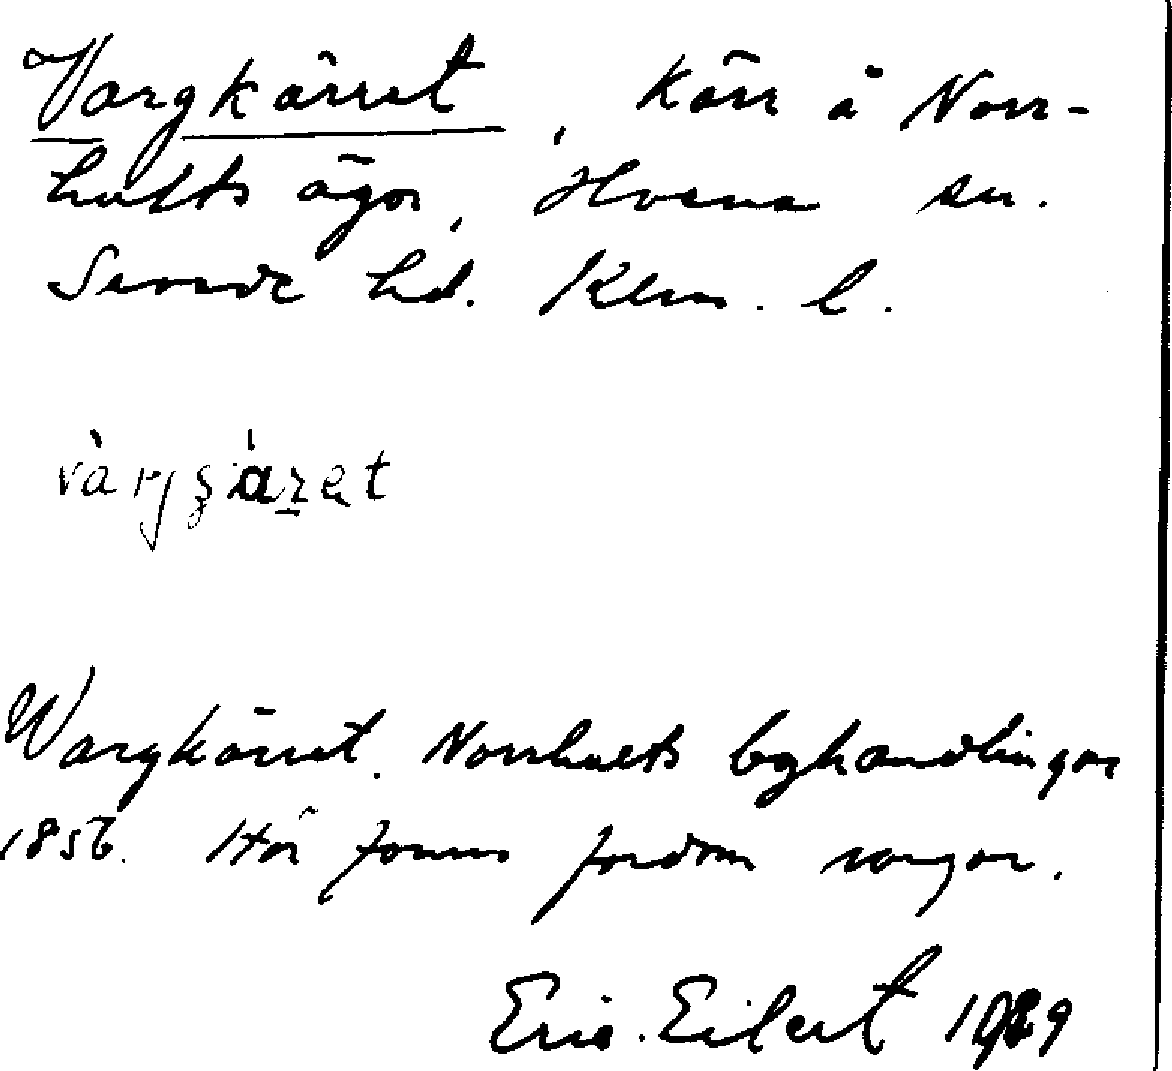 Vargkärret, kärr å Norr-
hults ägor, Hvena sn.
Sevede hd. Klm. l.
Wargkärret. Norrhults lyhandlingar
1856. Här fanns fordom vargar.
Eric Eilert